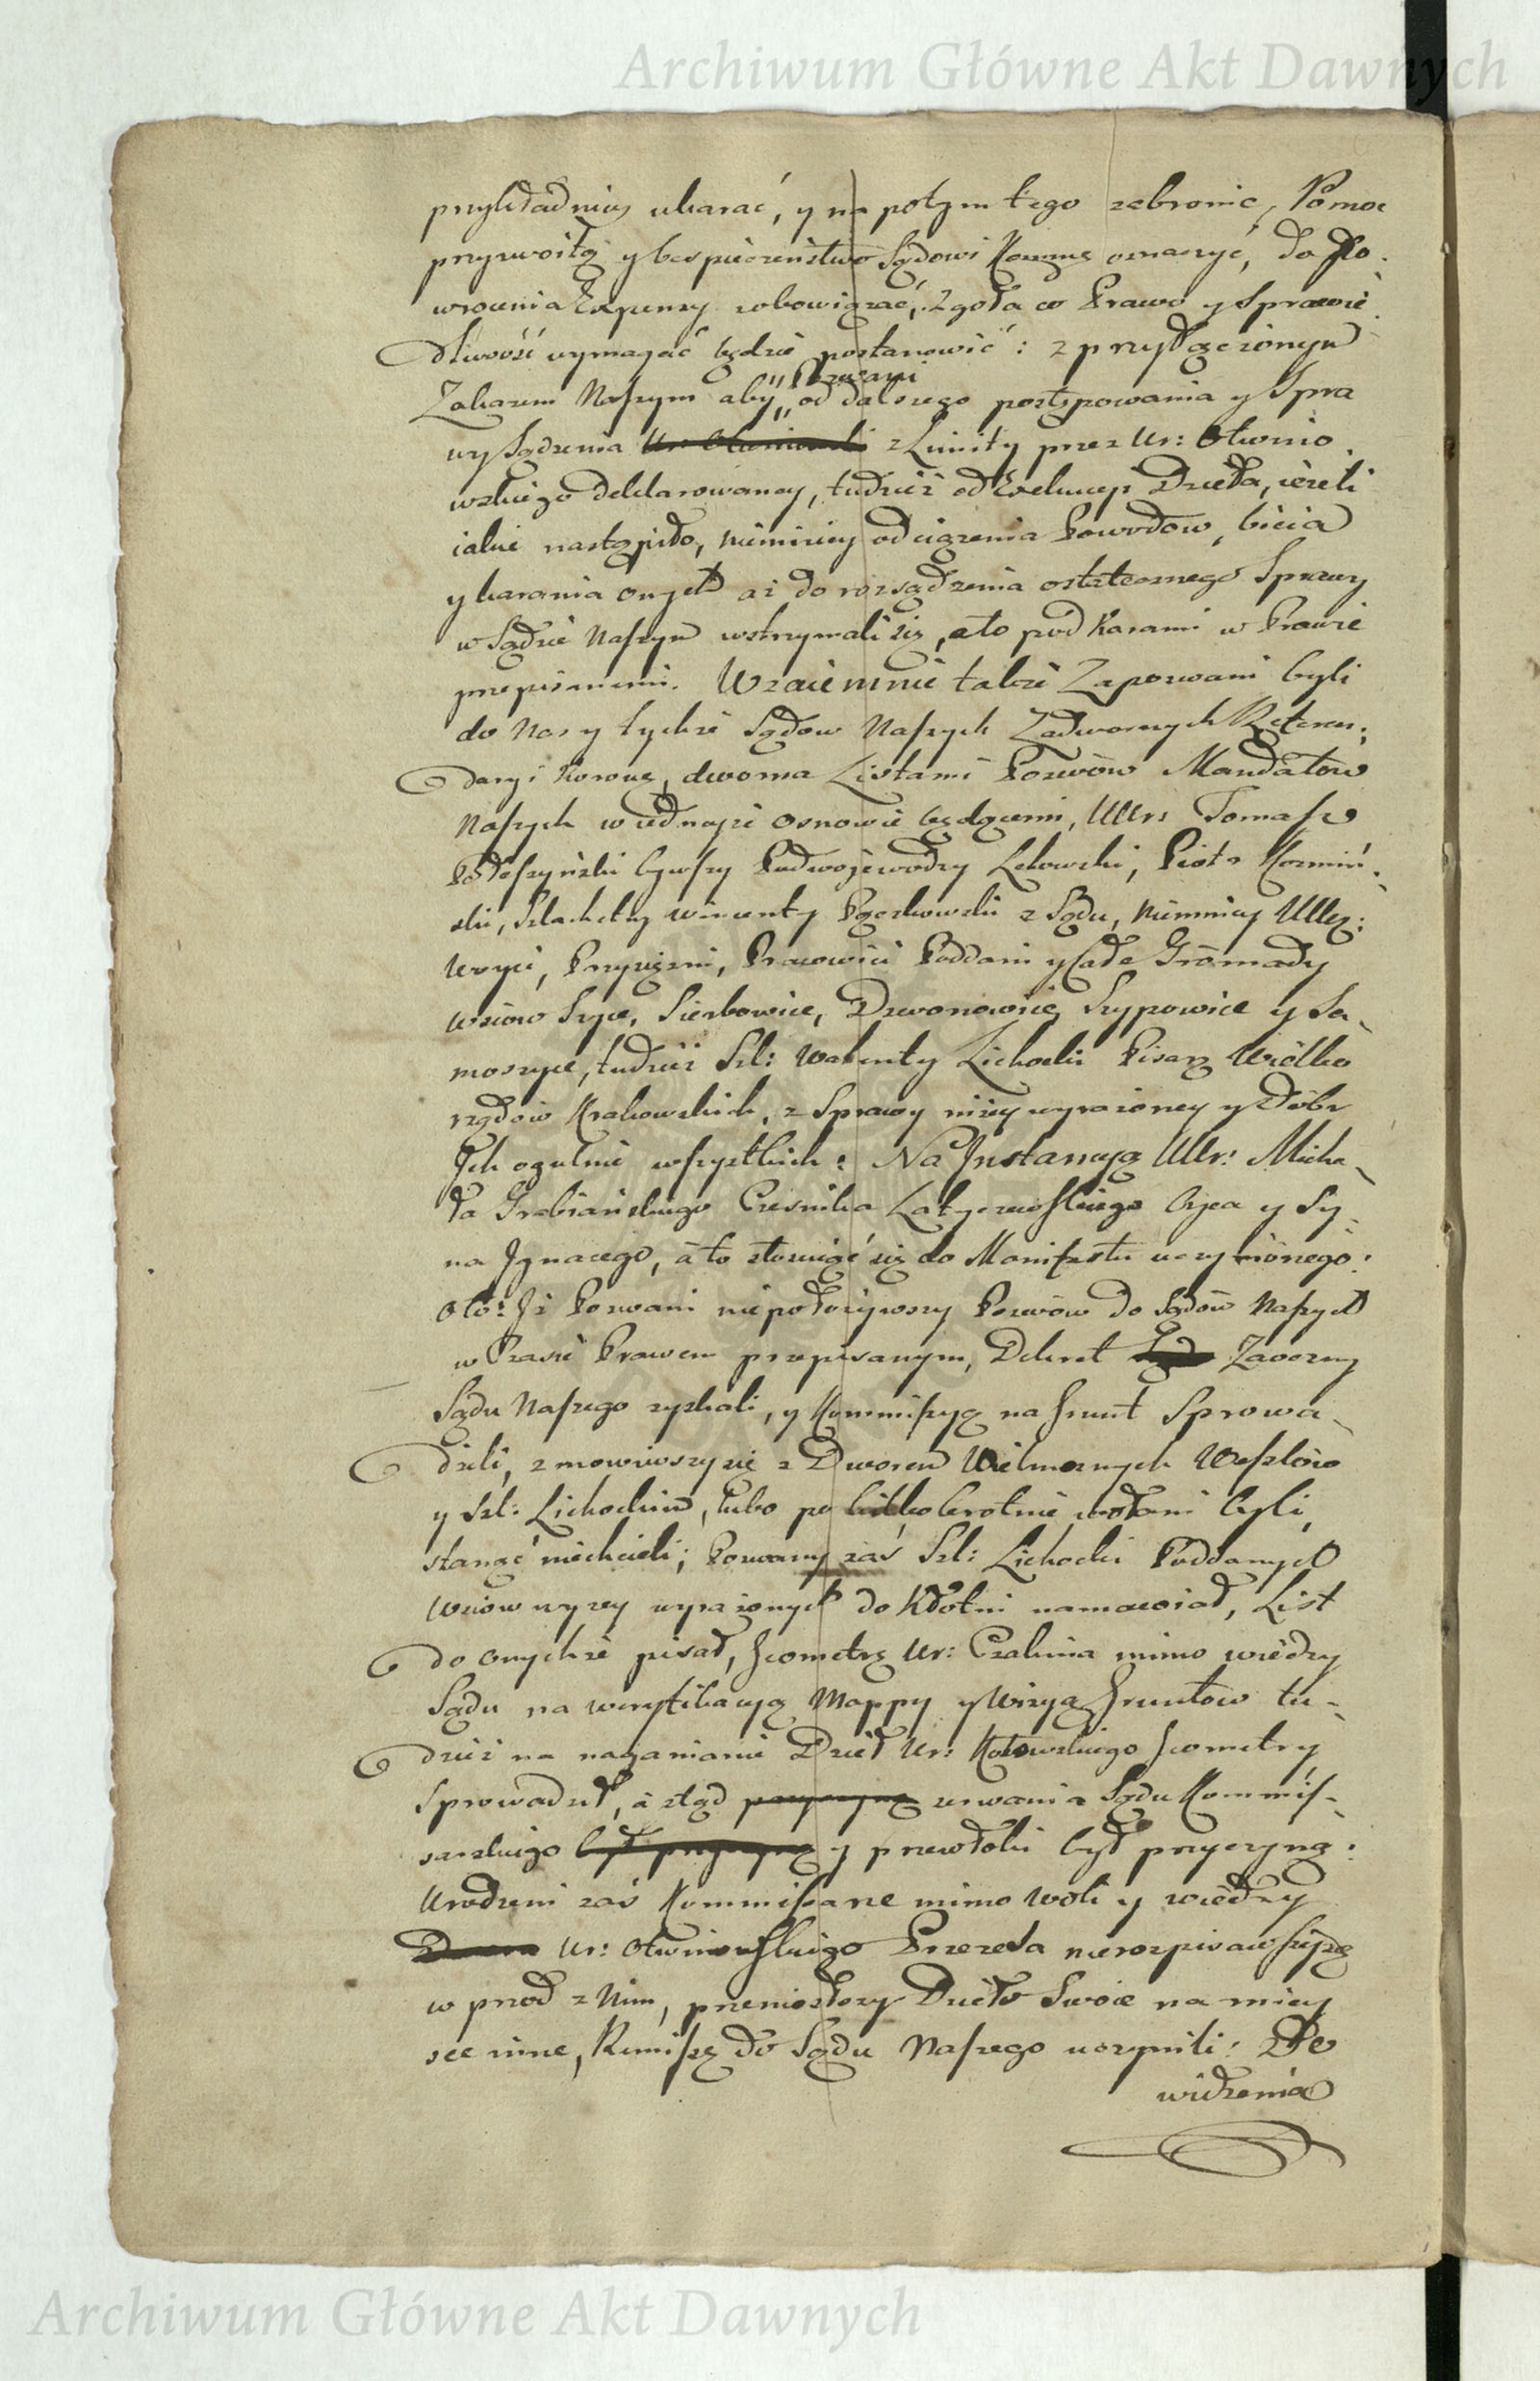 Archiwum Główne Akt Dawnych
przykładniey ukarać, y na potym tego zabronic, Pomoc
przyzwoitą y bespieczenstwo Sądowi Kommis oznaczyć, do Po-
wrocenia Expensy zobowiązać, zgoła co Prawo y Sprawie
dliwość wymagać będzie postanowić: z przyłączonym
Zakazem Naszym aby Pozwani od dalszego postępowania y Spra
wy Sądzenia Ur: Otwinowski z Limity przez Ur: Otwino
wskiego deklarowaney, tudzież od Exekucyi Dzieła, ieżeli
iakie nastąpiło, niemniey od ciążenia Powodow, bicia
y karania onych aż do rozsądzenia ostatecznego Sprawy
w Sądzie Naszym wstrzymali się, a to pod karami w Prawie
przepisanemi. Wzaiemnie także Zapozwani byli
do Nas y tychże Sądow Naszych Zadwornych Referen-
dary: Koronę, dwoma Listami Pozwow Mandatow
Naszych w iednejże osnowie będącemi, UUr: Tomasz
Podoszyński bywszy Podwojewodzy Lelowski, Piotr Kozmiń-
ski, Szlachetny Wincenty Pączkowski z Sądu, niemniey UUcz:
Woyci, Przysiężni, Pracowici Poddani y Całe Gromady
Wsiow Szyce, Sierbowice, Dzwonowice, Szypowice y Sa-
moszyce, tudzież Szl: Walenty Lichocki Pisarz Wielko
rządow Krakowskich, z Sprawy niżey wyrażoney y Dobr
Ich ogulnie wszystkich: Na Instancyą UUr: Micha-
ła Grabiańskiego Cześnika Latyczewskiego Oyca y Sy-
na Ignacego, a to stosuiąć się do Manifestu uczynionego:
Oto: Iż Pozwani niepołożywszy Pozwow do Sądow Naszych
w Czasie Prawem przepisanym, Dekret Zaoczny
Sądu Naszego zyskali, y Kommissyą na Grunt Sprowa-
dzili, zmowiwszy się z Dworem Wielmoznych Wesslow
y Szl: Lichockim, lubo po kilkokrotnie wołani byli,
stanąć niechcieli; Pozwany zaś Szl: Lichocki Poddanych
Wsiow wyżey wyrażonych do Kłotni namawiał, List
do onychże pisał, Geometrę Ur: Czakina mimo wiedzy
Sądu na weryfikacyą Mappy y Wizyą Gruntow tu-
dzież na naganianie Dzieł Ur: Kotowskiego Geometry
Sprowadził, a ztąd przyczyną zerwania Sądu Kommis-
sarskiego był przyczyną y przewłoki był przyczyną:
Urodzeni zaś Kommissarze mimo woli y wiedzy
Ur: Otwinowskiego Prezesa nierozpisawszy się
w przod z Nim, przeniosłszy Dzieło Swoie na miey
sce inne, Remissę do Sądu Naszego uczynili: Dla
widzenia
Archiwum Główne Akt Dawnych